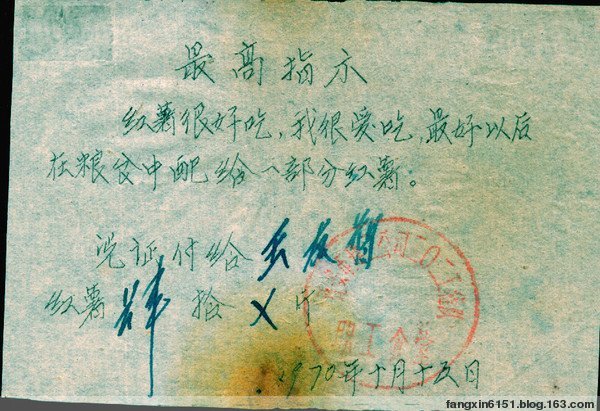 最高指示
红薯很好吃，我很爱吃，最好以后
在粮食中配给一部分红薯。
凭证付给
红薯 肆 拾 X 斤
1970年十月十五日
fangxin6151.blog.163.com